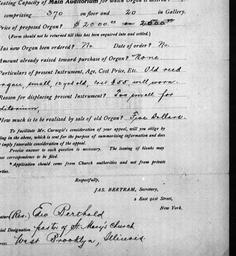 Seating Capacity of Main Auditorium for which Organ is
comprising 370 on floor and 20 in Gallery.
Price of proposed Organ? $2000.00
(Form should not be returned till this has been organized into and settled.)
Has new Organ been ordered? No Date of order? No.
Amount already raised toward purchase of Organ? None
Particulars of present Instrument, Age, Cost Price, Etc. Old reed
organ, small, 12 yr. old, cost $55, will
Reason for displacing present Instrument? Too small for
auditorium.
How much is to be realized by sale of old Organ? Five Dollars.
To facilitate Mr. Carnegie's consideration of your appeal, will you oblige by
filling in the above, which is used for the purpose of summarizing information and does
not imply favorable consideration of the appeal.
Precise answer to each question is necessary. The issuing of blanks may
correspondence to be filed.
* Application should come from Church authorities and not from private
parties.
Respectfully,
JAS. BERTRAM, Secretary,
2 East 91st Street,
New York.
(Rev.) Edw Berthold
Official Designation pastor of St. Mary's Church
West Brooklyn, Illinois.